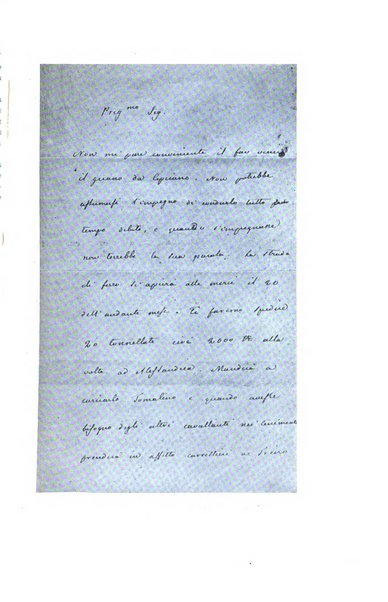 Preg.mo Sig.
Non mi pare conveniente il far venire
il guano da Cipriano. Non potrebbe
assumersi l'impegno di condurlo tutto
tempo debito, e quando s'impegnasse
non terrebbe la sua parola. La strada
di ferro si aprirà alle merci il 20
dell'andante mese. Si faranno spedire
20 tonnellate cioè 2000 alla
volta ad Alessandria. Manderà a
caricarlo Somalino e quando avesse
bisogno degli altri cavallanti nei
prenderà in affitto carrettieri